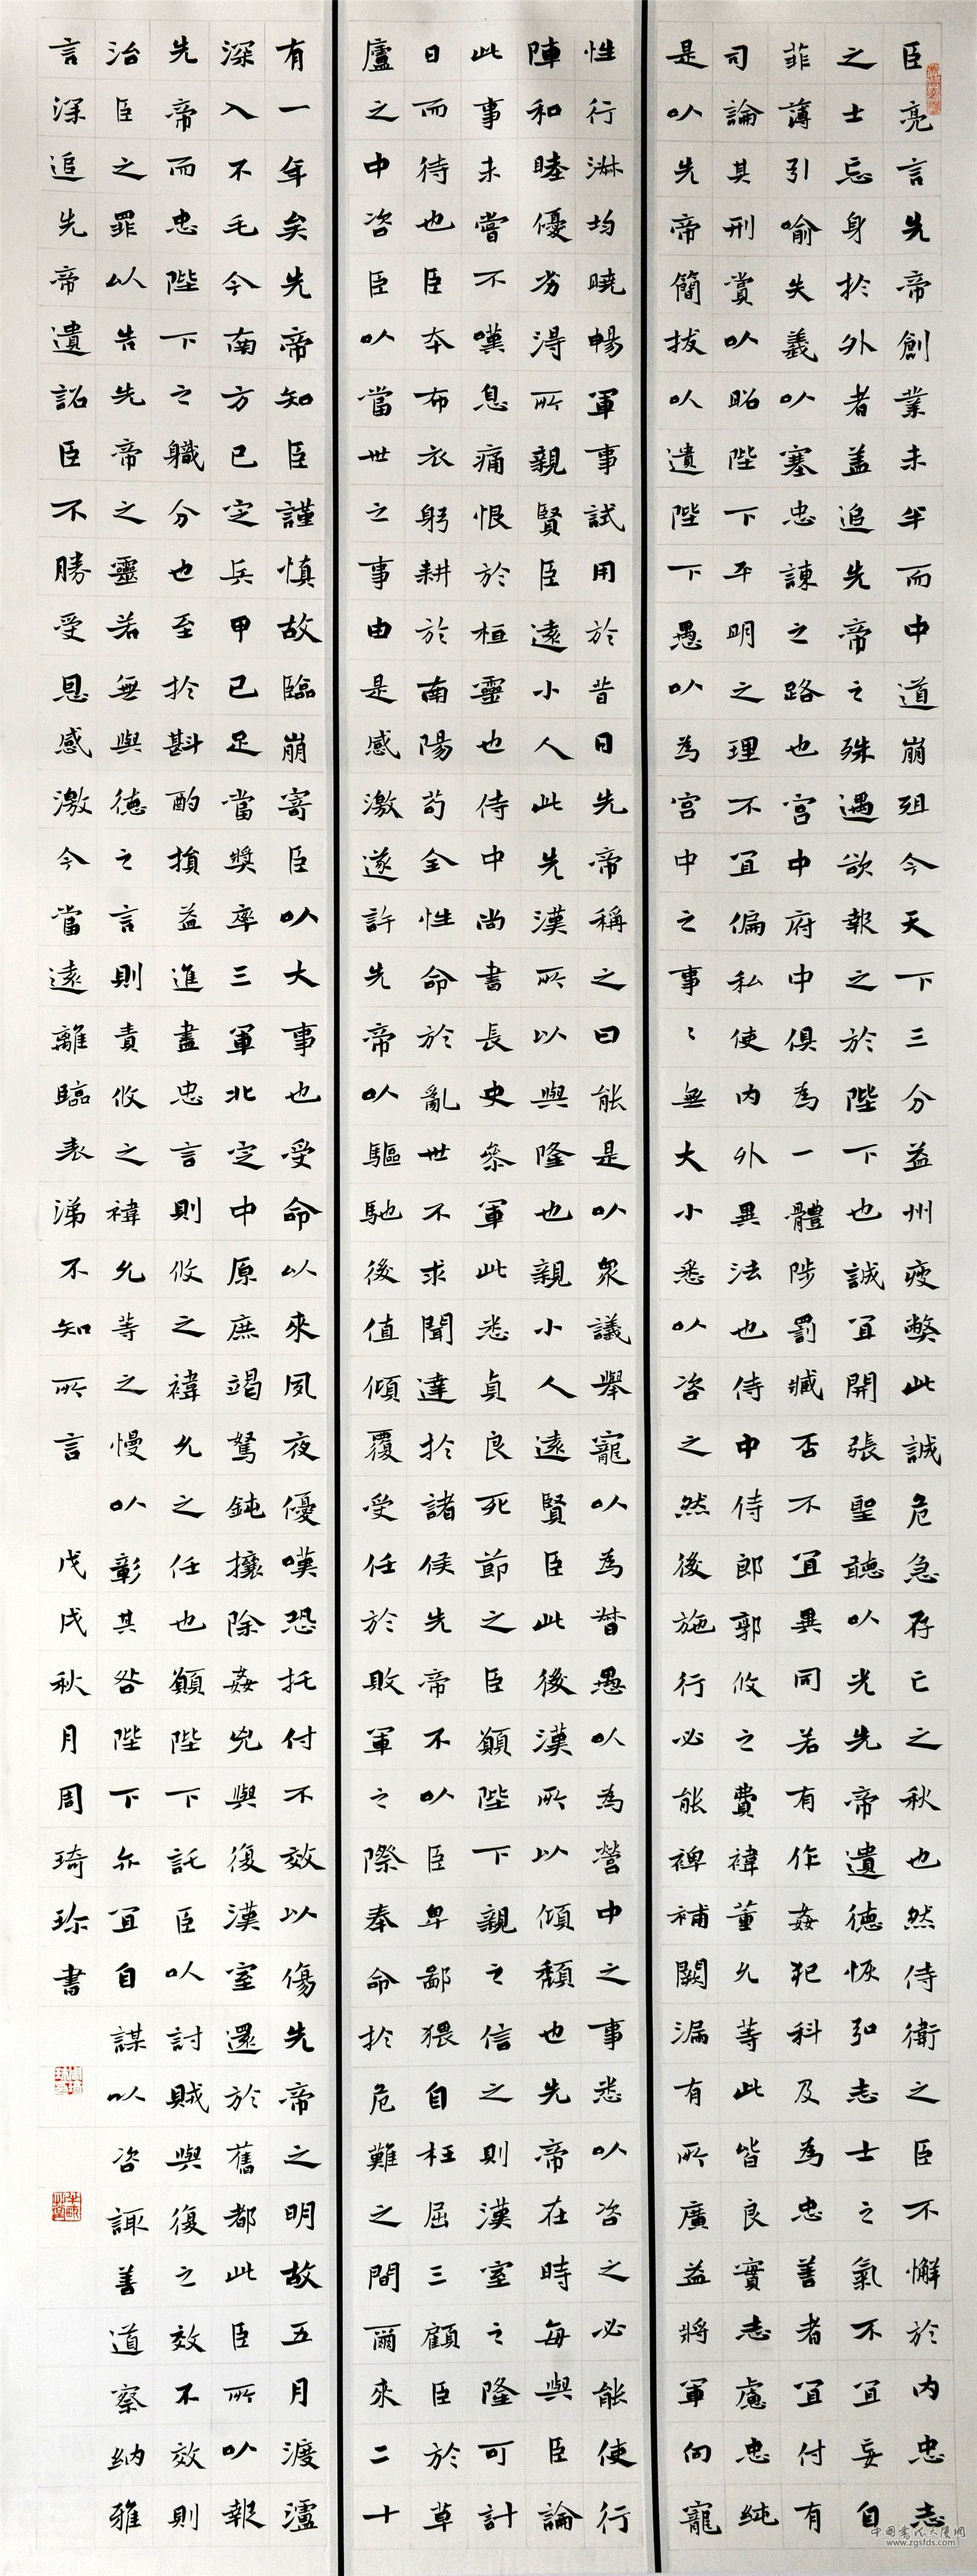 臣亮言先帝創業未半而中道崩殂今天下三分益州疲弊此誠危急存亡之秋也然侍衛之臣不懈於內忠志
之士忘身於外者蓋追先帝之殊遇欲報之於陛下也誠宜開張聖聽以光先帝遺德恢弘志士之氣不宜妄自
菲薄引喻失義以塞忠諫之路也宮中府中俱為一體陟罰臧否不宜異同若有作姦犯科及為忠善者宜付有
司論其刑賞以昭陛下平明之理不宜偏私使內外異法也侍中侍郎郭攸之費禕董允等此皆良實志慮忠純
是以先帝簡拔以遺陛下愚以為宮中之事〻無大小悉以咨之然後施行必能裨補闕漏有所廣益將軍向寵
性行淋均曉暢軍事試用於昔日先帝稱之曰能是以眾議舉寵以為督愚以為營中之事悉以咨之必能使行
陣和睦優劣得所親賢臣遠小人此先漢所以興隆也親小人遠賢臣此後漢所以傾頹也先帝在時每與臣論
此事未嘗不嘆息痛恨於桓靈也侍中尚書長史參軍此悉貞良死節之臣願陛下親之信之則漢室之隆可計
日而待也臣本布衣躬耕於南陽苟全性命於亂世不求聞達於諸侯先帝不以臣卑鄙猥自枉屈三顧臣於草
廬之中咨臣以當世之事由是感激遂許先帝以驅馳後值傾覆受任於敗軍之際奉命於危難之間爾來二十
有一年矣先帝知臣謹慎故臨崩寄臣以大事也受命以來夙夜優嘆恐托付不效以傷先帝之明故五月渡瀘
深入不毛今南方已定兵甲已足當獎率三軍北定中原庶竭駑鈍攘除姦兇興復漢室還於舊都此臣所以報
先帝而忠陛下之職分也至於斟酌損益進盡忠言則攸之禕允之任也願陛下託臣以討賊興復之效不效則
治臣之罪以告先帝之靈若無興德之言則責攸之禕允等之慢以彰其咎陛下亦宜自謀以咨諏善道察納雅
言深追先帝遺詔臣不勝受恩感激今當遠離臨表涕不知所言 戊戌秋月周琦珎書
中國書法大廈網
www.zgsfds.com